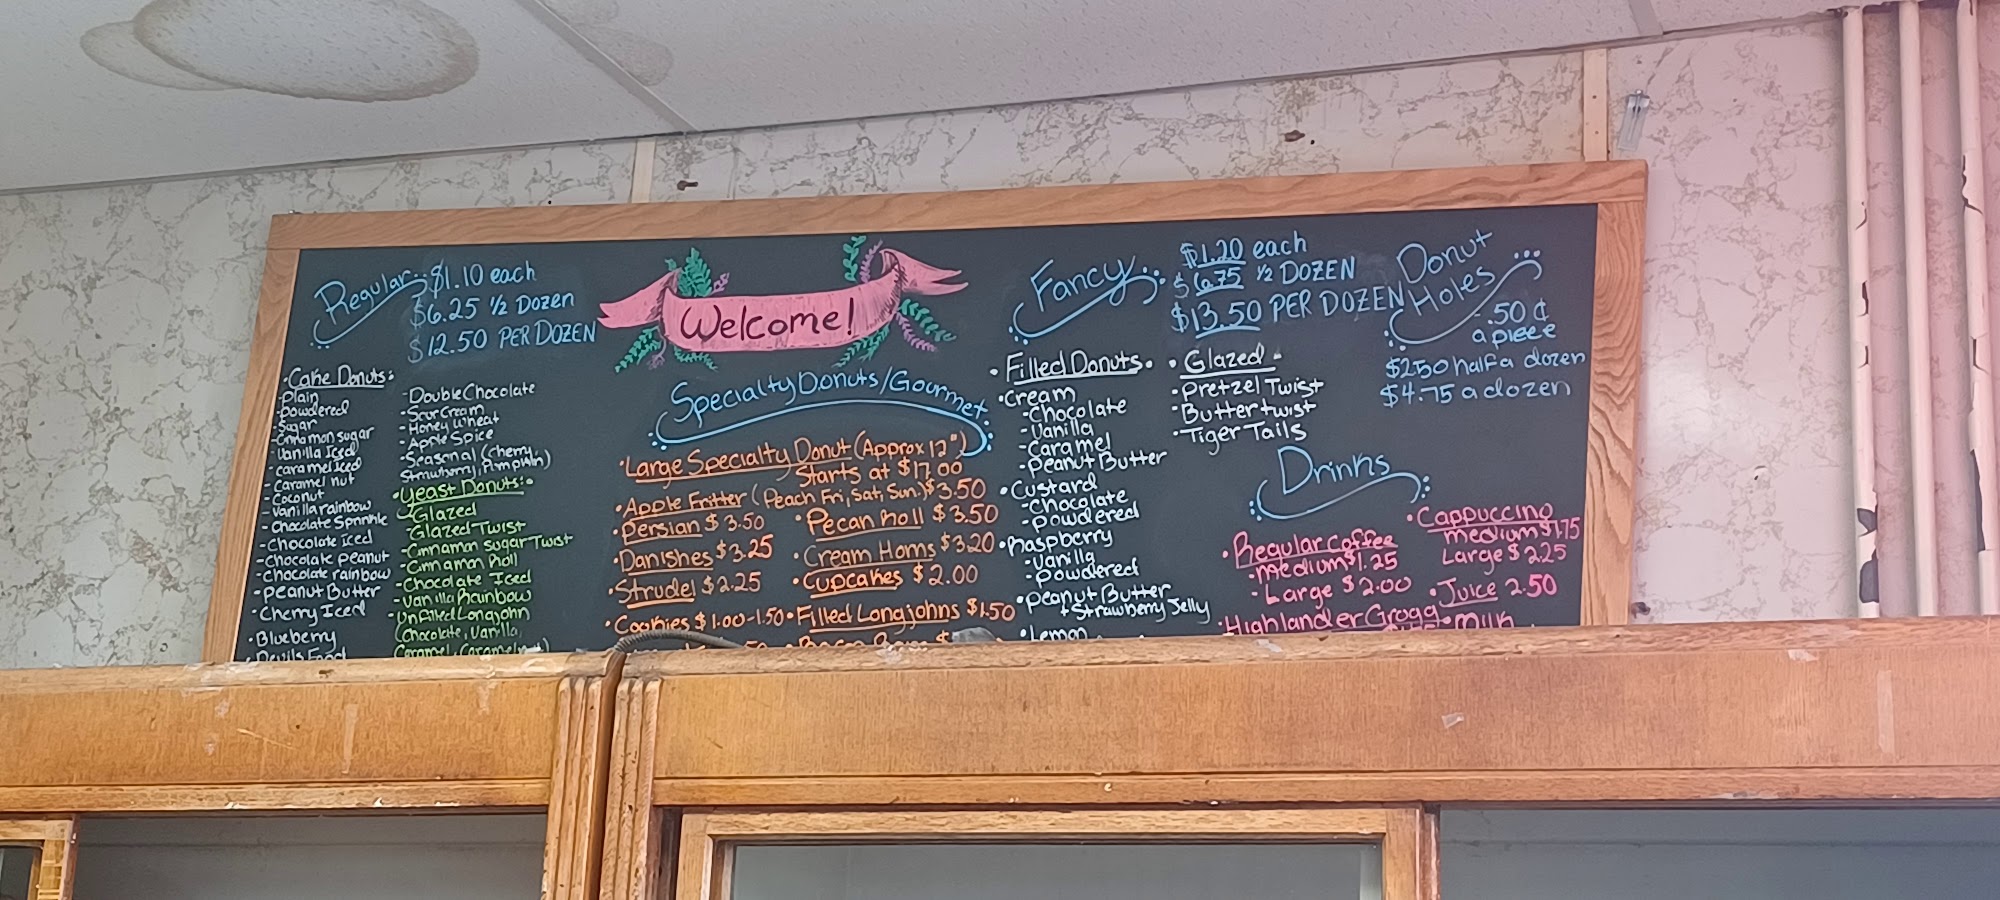 Regular: $1.10 each
$6.25 ½ DOZEN
$12.50 PER DOZEN
• Cake Donuts:
- Plain
- powdered
- Sugar
- Cinnamon sugar
- Vanilla Iced
- caramel iced
- Caramel nut
- Coconut
- Vanilla rainbow
- Chocolate Sprinkle
- Chocolate iced
- Chocolate peanut
- Chocolate rainbow
- peanut Butter
- Cherry Iced
• Blueberry
• Devils Food
- Double Chocolate
- Sour Cream
- Honey Wheat
- Apple Spice
- Seasonal (Cherry,
Strawberry, Pumpkin)
• Yeast Donuts: •
- Glazed
- Glazed Twist
- Cinnamon Sugar Twist
- Cinnamon Roll
- Chocolate Iced
- Vanilla Rainbow
- Unfilled Longjohn
(Chocolate, Vanilla,
Caramel,
Welcome!
Specialty Donuts/Gourmet
• Large Specialty Donut (Approx 12")
Starts at $17.00
• Apple Fritter (Peach Fri, Sat, Sun.) $3.50
• Persian $3.50
• Danishes $3.25
• Strudel $2.25
• Cookies $1.00-1.50
• Pecan Roll $3.50
• Cream Horns $3.20
• Cupcakes $2.00
• Filled Longjohns $1.50
Fancy:
$1.20 each
$6.75 ½ DOZEN
$13.50 PER DOZEN
• Filled Donuts •
• Cream
- Chocolate
- Vanilla
- Caramel
- Peanut Butter
• Custard
- Chocolate
- powdered
• Raspberry
- Vanilla
- powdered
• Peanut Butter
+ Strawberry Jelly
• Lemon
• Glazed -
• Pretzel Twist
• Butter twist
• Tiger Tails
Donut
Holes
- .50 ¢
a piece
$2.50 half a dozen
$4.75 a dozen
Drinks
• Regular Coffee
- medium $1.25
- Large $2.00
• Highlander Grogg
• Cappuccino
medium $1.75
Large $2.25
• Juice 2.50
• Milk